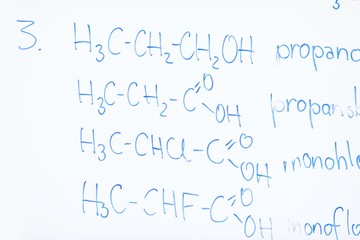 3. H₃C-CH₂-CH₂OH propano
H₃C-CH₂-C=O OH propansk
H₃C-CHCl-C=O OH monohlo
H₃C-CHF-C=O OH monoflo